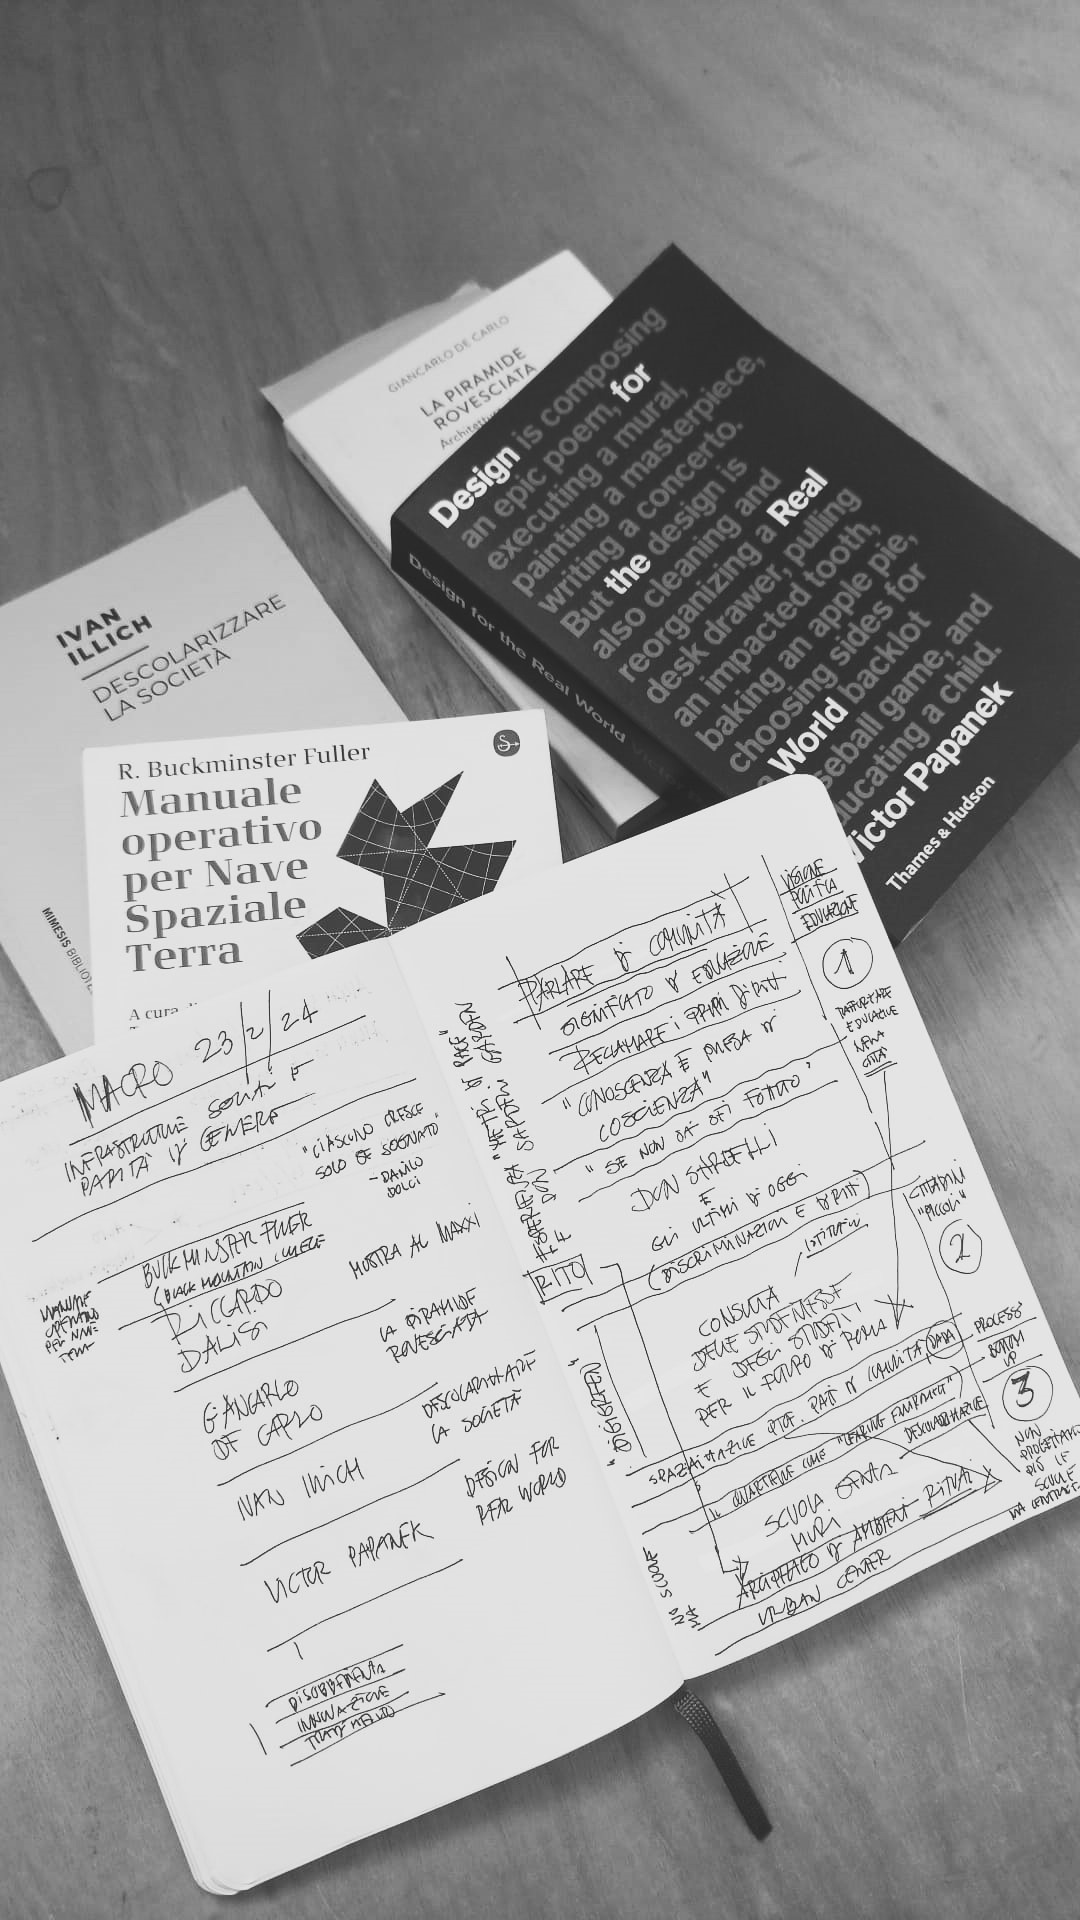 GIANCARLO DE CARLO
LA PIRAMIDE
ROVESCIATA
Design is composing
an epic poem, for
executing a mural,
painting a masterpiece,
writing a concerto.
But the design is
also cleaning and
reorganizing a Real
desk drawer, pulling
an impacted tooth,
baking an apple pie,
choosing sides for
a World backlot
baseball game, and
educating a child.
Victor Papanek
Thames & Hudson
Design for the Real World
IVAN
ILLICH
DESCOLARIZZARE
LA SOCIETÀ
MIMESIS
R. Buckminster Fuller
Manuale
operativo
per Nave
Spaziale
Terra
A cura
MACRO 23/2/24
INFRASTRUTTURE SOCIALI E
PARITÀ DI GENERE
"CIASCUNO CRESCE
SOLO SE SOGNATO"
- DANILO
DOLCI
BUCKMINSTER FULLER
(BLACK MOUNTAIN COLLEGE
MANUALE
OPERATIVO
PER NAVE
TERRA
RICCARDO
DALISI
MOSTRA AL MAXXI
GIANCARLO
DE CARLO
LA PIRAMIDE
ROVESCIATA
IVAN ILLICH
DESCOLARIZZARE
LA SOCIETÀ
VICTOR PAPANEK
DESIGN FOR
REAL WORLD
DISOBBEDIENZA
INNOVAZIONE
TRADIMENTO
PARLARE DI COMUNITÀ
SIGNIFICATO DI EDUCAZIONE
RECLAMARE I PROPRI DIRITTI
"CONOSCENZA È PRESA DI
COSCIENZA"
"SE NON SAI SEI FOTTUTO"
DON SARDELLI
E
GLI ULTIMI DI OGGI
(DISCRIMINAZIONI E DIRITTI)
CONSULTA
DELLE STUDENTESSE
E DEGLI STUDENTI
PER IL FUTURO DI ROMA
SCUOLA SENZA
MURI
ARCIPELAGO DI AMBIENTI RITUALI
URBAN CENTER
RITO
VISIONE
POLITICA
EDUCAZIONE
1
EDUCATIVE
NELLA
CITTÀ
CITTADINI
"PICCOLI"
2
PROCESSI
BOTTOM
UP
3
NON
PROGETTIAMO
PIÙ LE
SCUOLE